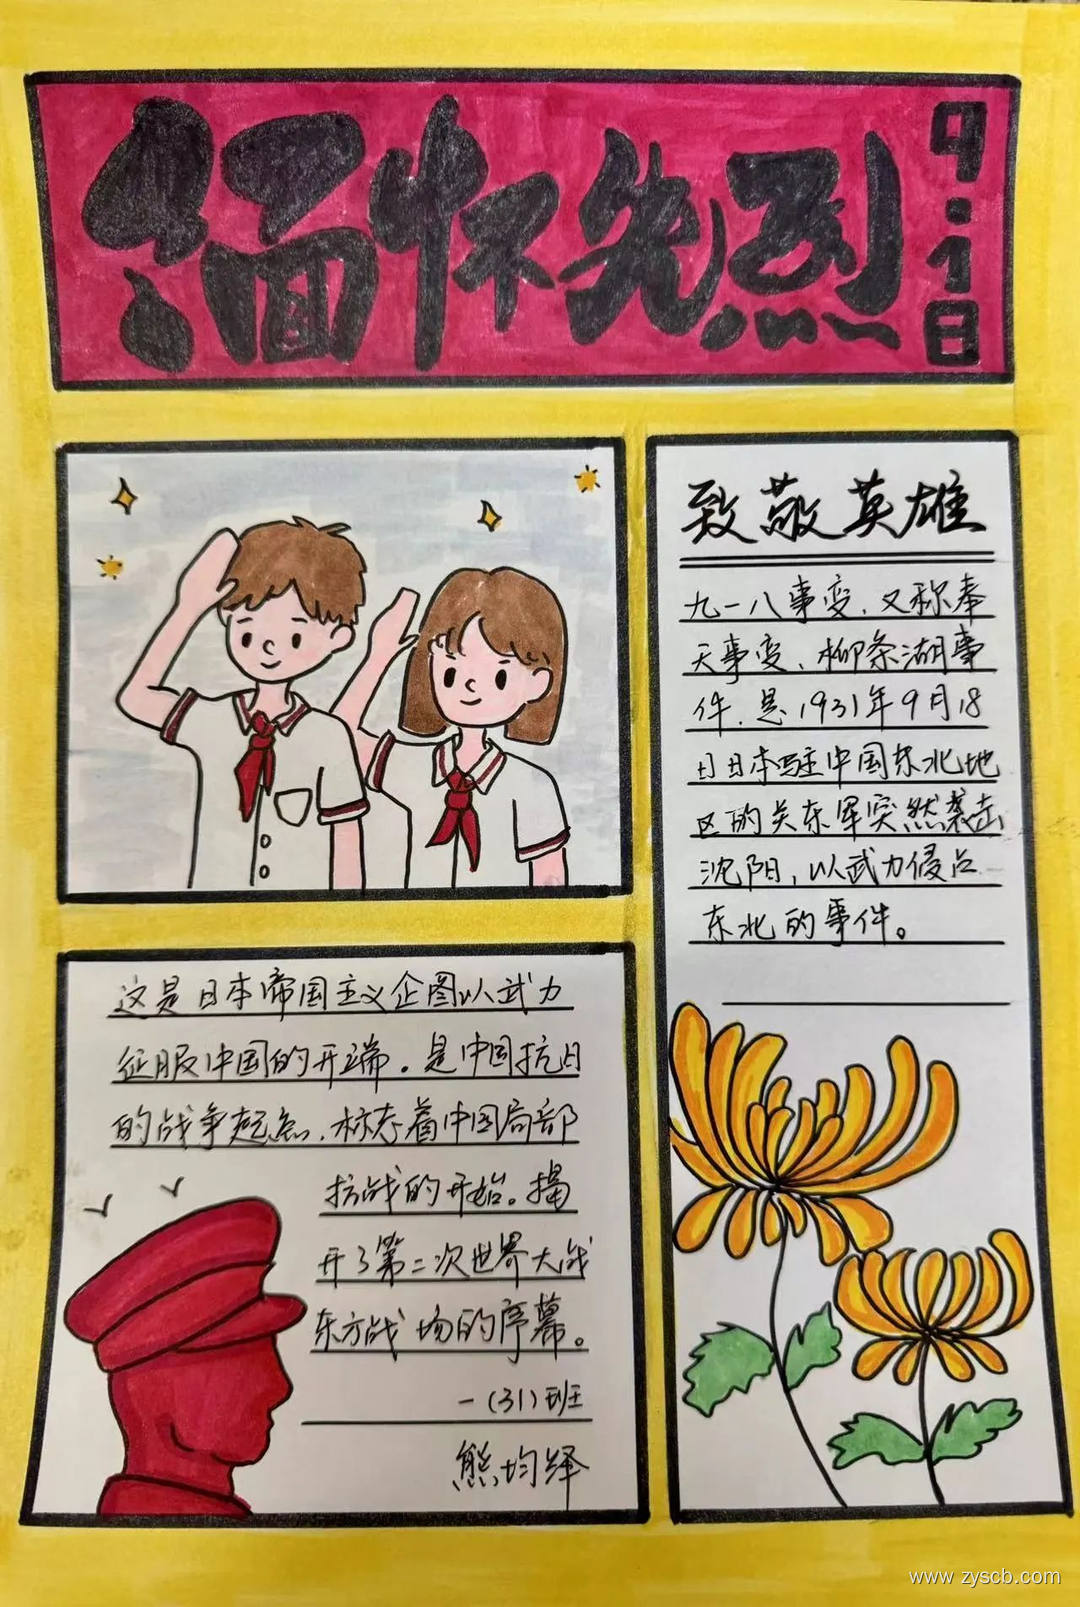 缅怀先烈
9.18
致敬英雄
九一八事变,又称奉
天事变、柳条湖事
件.是1931年9月18
日日本驻中国东北地
区的关东军突然袭击
沈阳,以武力侵占
东北的事件。
这是日本帝国主义企图以武力
征服中国的开端。是中国抗日
的战争起点.标志着中国局部
抗战的开始。揭
开了第二次世界大战
东方战场的序幕。
一(31)班
熊均绎
www.zyscb.com